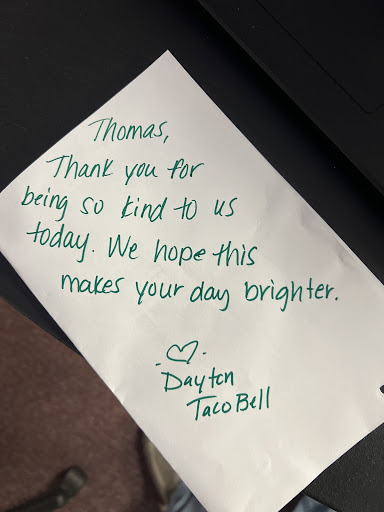 Thomas,
Thank you for
being so kind to us
today. We hope this
makes your day brighter.
Dayton
Taco Bell